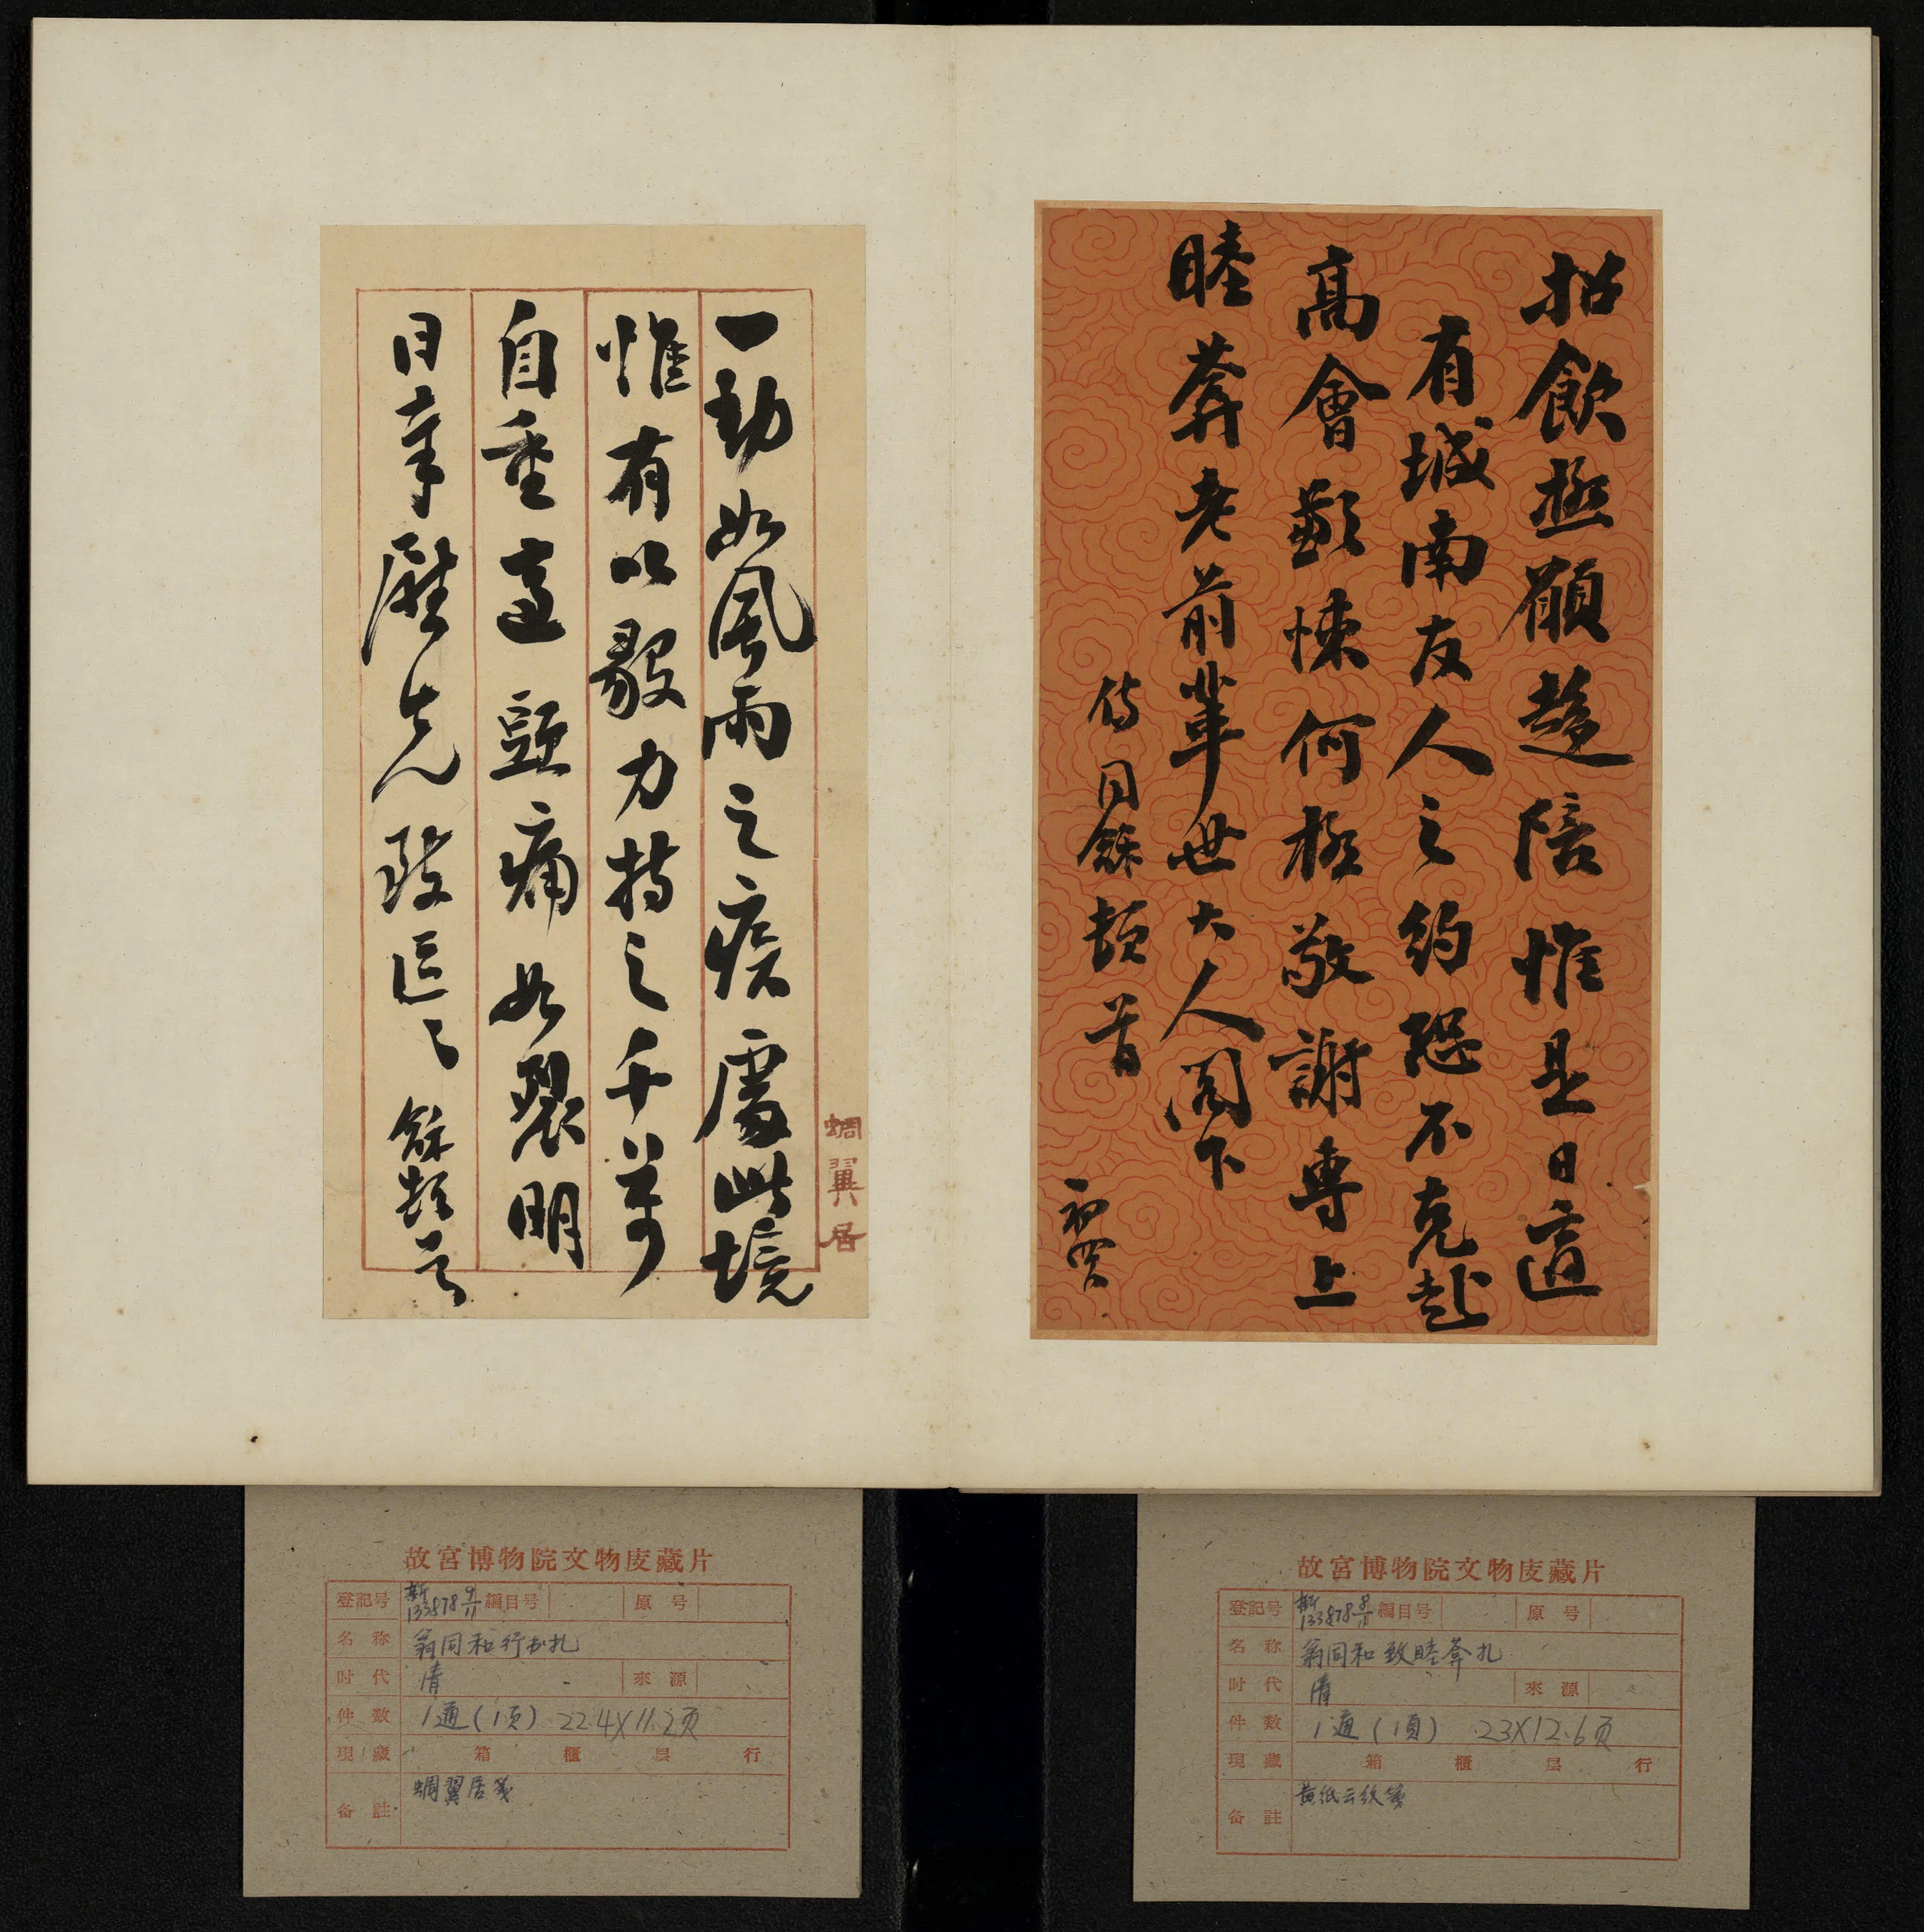 招飲極願趨陪惟是日適
有城南友人之約恐不克赴
高會歉悚何極敬謝專上
睦莽老前輩世大人閣下
侍同龢頓首
初四
一動如風雨之疾處此境
惟有以毅力持之千萬
自重適頭痛如裂明
日幸蹔先致區〻龢頓首
蜩翼居
故宮博物院文物庋藏片
登記号 新133878 9/11 編目号 原号
名称 翁同和行书札
时代 清 來源
件数 1通(1页) 22.4X11.2页
現藏 箱 櫃 层 行
备註 蜩翼居笺
故宮博物院文物庋藏片
登記号 新133878 8/11 編目号 原号
名称 翁同和致睦莽札
时代 清 來源
件数 1通(1頁) 23X12.6页
現藏 箱 櫃 层 行
备註 黄纸云纹笺